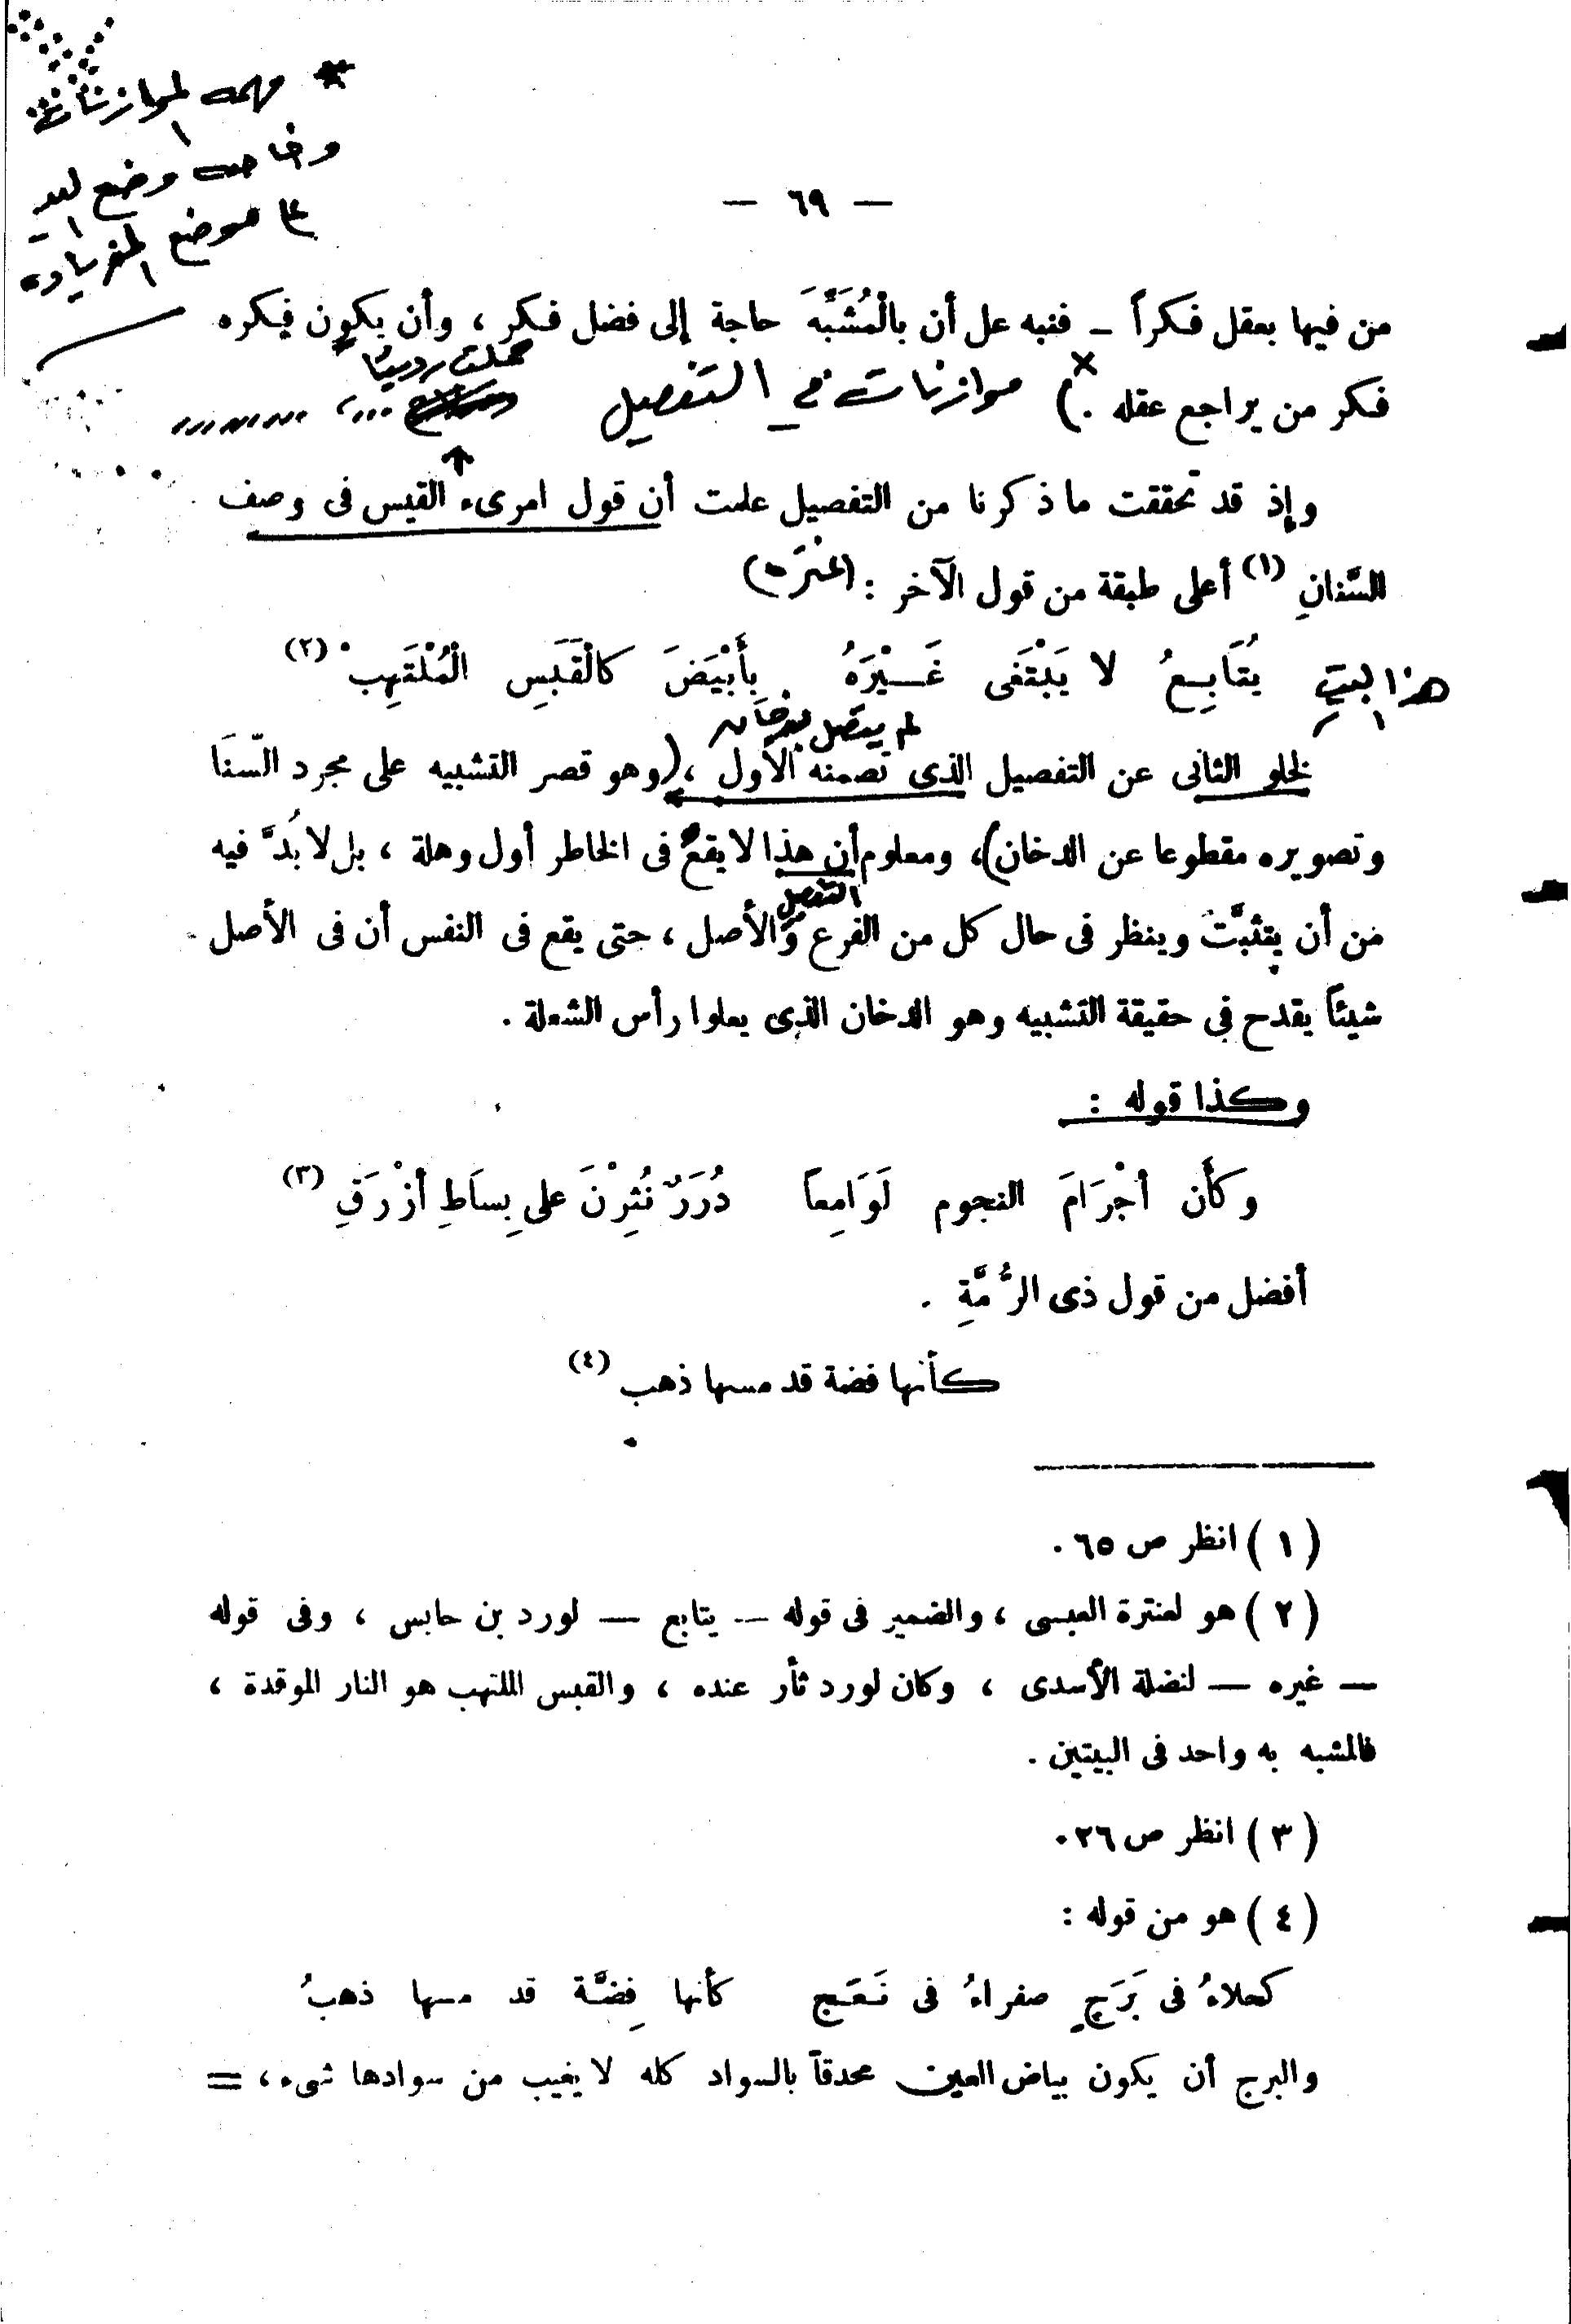 * مهمه الموازنات
وخاصه وضع اليد
على موضع
— ٦٩ —
من فيها بعقل فكراً – فنبه على أن بالْمُشَبَّهَ حاجة إلى فضل فكر ، وأن يكون فكره
حملت ردينيا
فكر من يراجع عقله .) موازنات في التفصيل
وإذ قد تحققت ما ذكرنا من التفصيل علمت أن قول امرىء القيس فى وصف
السَّنانِ (١) أعلى طبقة من قول الآخر : (عنترة)
هذا البيت يُتَابِعُ لا يَبْتَغَى غَيْرَهُ بِأَبْيَضَ كالْقَبَسِ الْمُلْتَهِبْ (٢)
لم يتصل بدخان
لخلو الثانى عن التفصيل الذى تضمنه الأول ، (وهو قصر التشبيه على مجرد السّنَا
وتصويره مقطوعا عن الدخان) ، ومعلوم أن هذا لا يقع فى الخاطر أول وهلة ، بل لا بُدَّ فيه
التفصيل
من أن يتثبَّتَ وينظر فى حال كل من الفرع والأصل ، حتى يقع فى النفس أن فى الأصل
شيئاً يقدح فى حقيقة التشبيه وهو الدخان الذى يعلوا رأس الشعلة .
وكذا قوله :
وكَأَن أجْرَامَ النجوم لَوَامِعاً دُرَرٌ نُثِرْنَ على بِسَاطِ أزْرَقِ (٣)
أفضل من قول ذى الرُّمَّةِ .
كأنها فضة قد مسها ذهب (٤)
( ١ ) انظر ص ٦٥ .
( ٢ ) هو لعنترة العبسى ، والضمير فى قوله — يتابع — لورد بن حابس ، وفى قوله
— غيره — لنضلة الأسدى ، وكان لورد ثأر عنده ، والقبس الملتهب هو النار الموقدة ،
فالمشبه به واحد فى البيتين .
( ٣ ) انظر ص ٢٦ .
( ٤ ) هو من قوله :
كحلاءُ فى بَرَجٍ صفراءُ فى نَعَج كأنها فِضَّة قد مسها ذهبُ
والبرج أن يكون بياض العين محدقاً بالسواد كله لا يغيب من سوادها شىء ، =